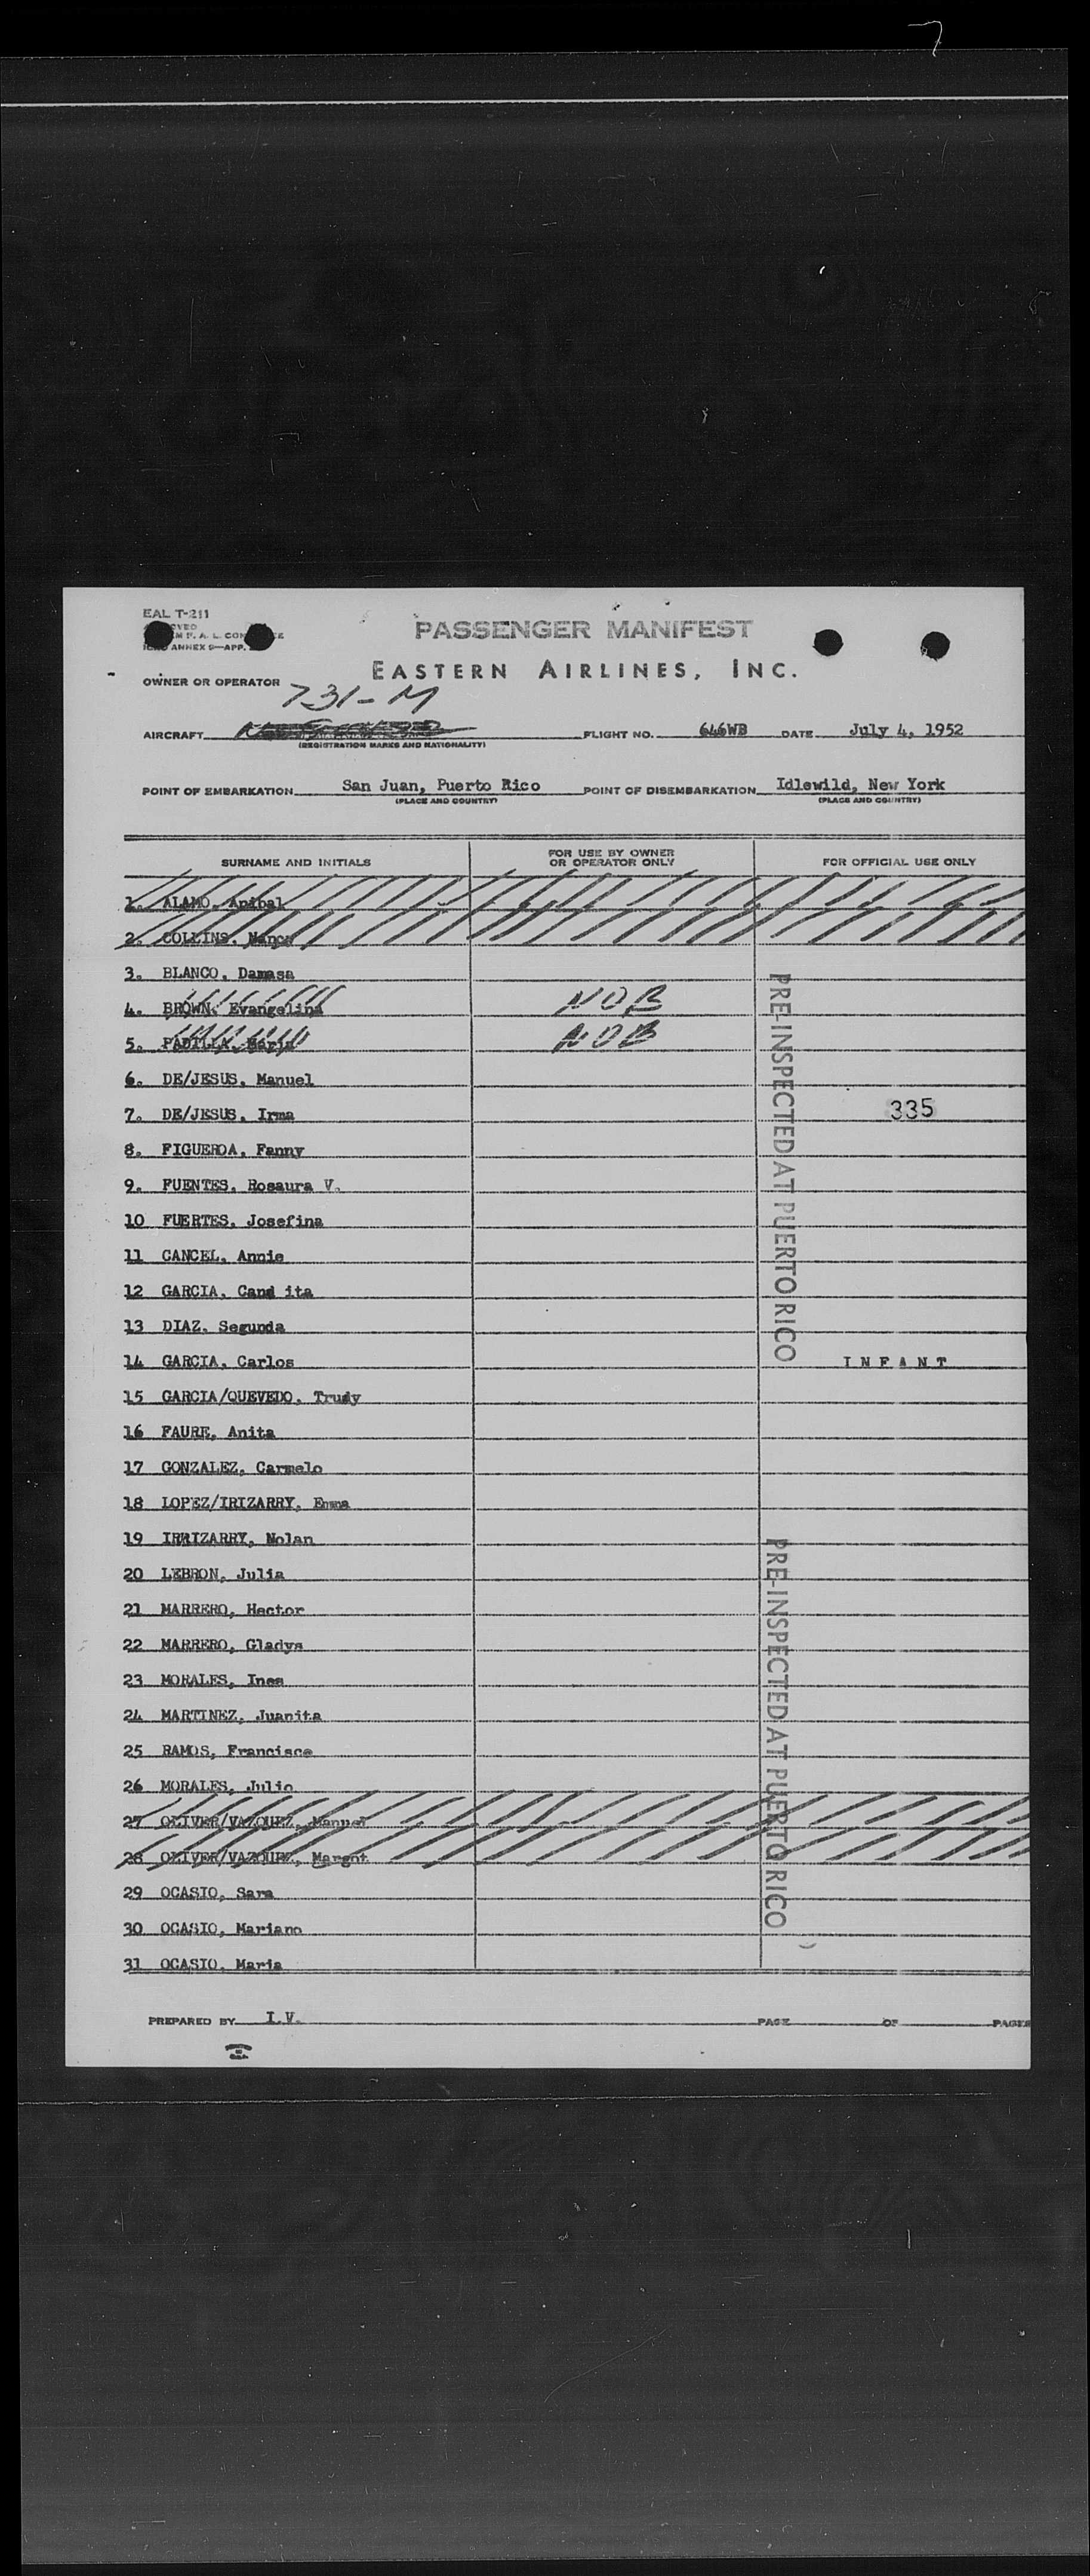 7
EAL T-211
ANNEX 9—APP.
PASSENGER MANIFEST
EASTERN AIRLINES, INC.
OWNER OR OPERATOR
731-M
AIRCRAFT FLIGHT NO. 646WB DATE July 4, 1952
(REGISTRATION MARKS AND NATIONALITY)
POINT OF EMBARKATION San Juan, Puerto Rico POINT OF DISEMBARKATION Idlewild, New York
(PLACE AND COUNTRY) (PLACE AND COUNTRY)
SURNAME AND INITIALS FOR USE BY OWNER OR OPERATOR ONLY FOR OFFICIAL USE ONLY
1. ALAMO, Anibal
2. COLLINS, Nancy
3. BLANCO, Damasa
4. BROWN, Evangelina NOB
5. PADILLA, Maria NOB
6. DE/JESUS, Manuel
7. DE/JESUS, Irma 335
8. FIGUEROA, Fanny
9. FUENTES, Rosaura V.
10 FUERTES, Josefina
11 CANCEL, Annie
12 GARCIA, Cand ita
13 DIAZ, Segunda
14 GARCIA, Carlos INFANT
15 GARCIA/QUEVEDO, Trudy
16 FAURE, Anita
17 GONZALEZ, Carmelo
18 LOPEZ/IRIZARRY, Emma
19 IRRIZARRY, Nolan
20 LEBRON, Julia
21 MARRERO, Hector
22 MARRERO, Gladys
23 MORALES, Ines
24 MARTINEZ, Juanita
25 RAMOS, Francisco
26 MORALES, Julio
27 OLIVER/VAZQUEZ, Manuel
28 OLIVER/VAZQUEZ, Margot
29 OCASIO, Sara
30 OCASIO, Mariano
31 OCASIO, Maria
PRE-INSPECTED AT PUERTO RICO
PRE-INSPECTED AT PUERTO RICO
PREPARED BY I.V. PAGE OF PAGES